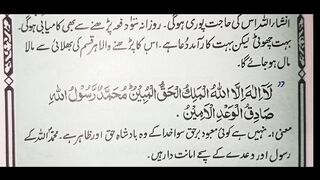 انشاء اللہ اس کی حاجت پوری ہوگی۔ روزانہ سو دفعہ پڑھنے سے بھی کامیابی ہوگی۔
بہت چھوٹی لیکن بہت کارآمد دُعا ہے۔ اس کا پڑھنے والا ہر قسم کی بھلائی سے مالا
مال ہو جائے گا۔
لَآ اِلٰهَ اِلَّا اللّٰهُ الْمَلِكُ الْحَقُّ الْمُبِيْنُ مُحَمَّدٌ رَّسُوْلُ اللّٰهِ
صَادِقُ الْوَعْدِ الْاَمِيْنُ
معنی:۔ نہیں ہے کوئی معبود برحق سوا خدا کے وہ بادشاہ حق اور ظاہر ہے۔ محمدؐ اللہ کے
رسول اور وعدے کے سچے امانت دار ہیں۔